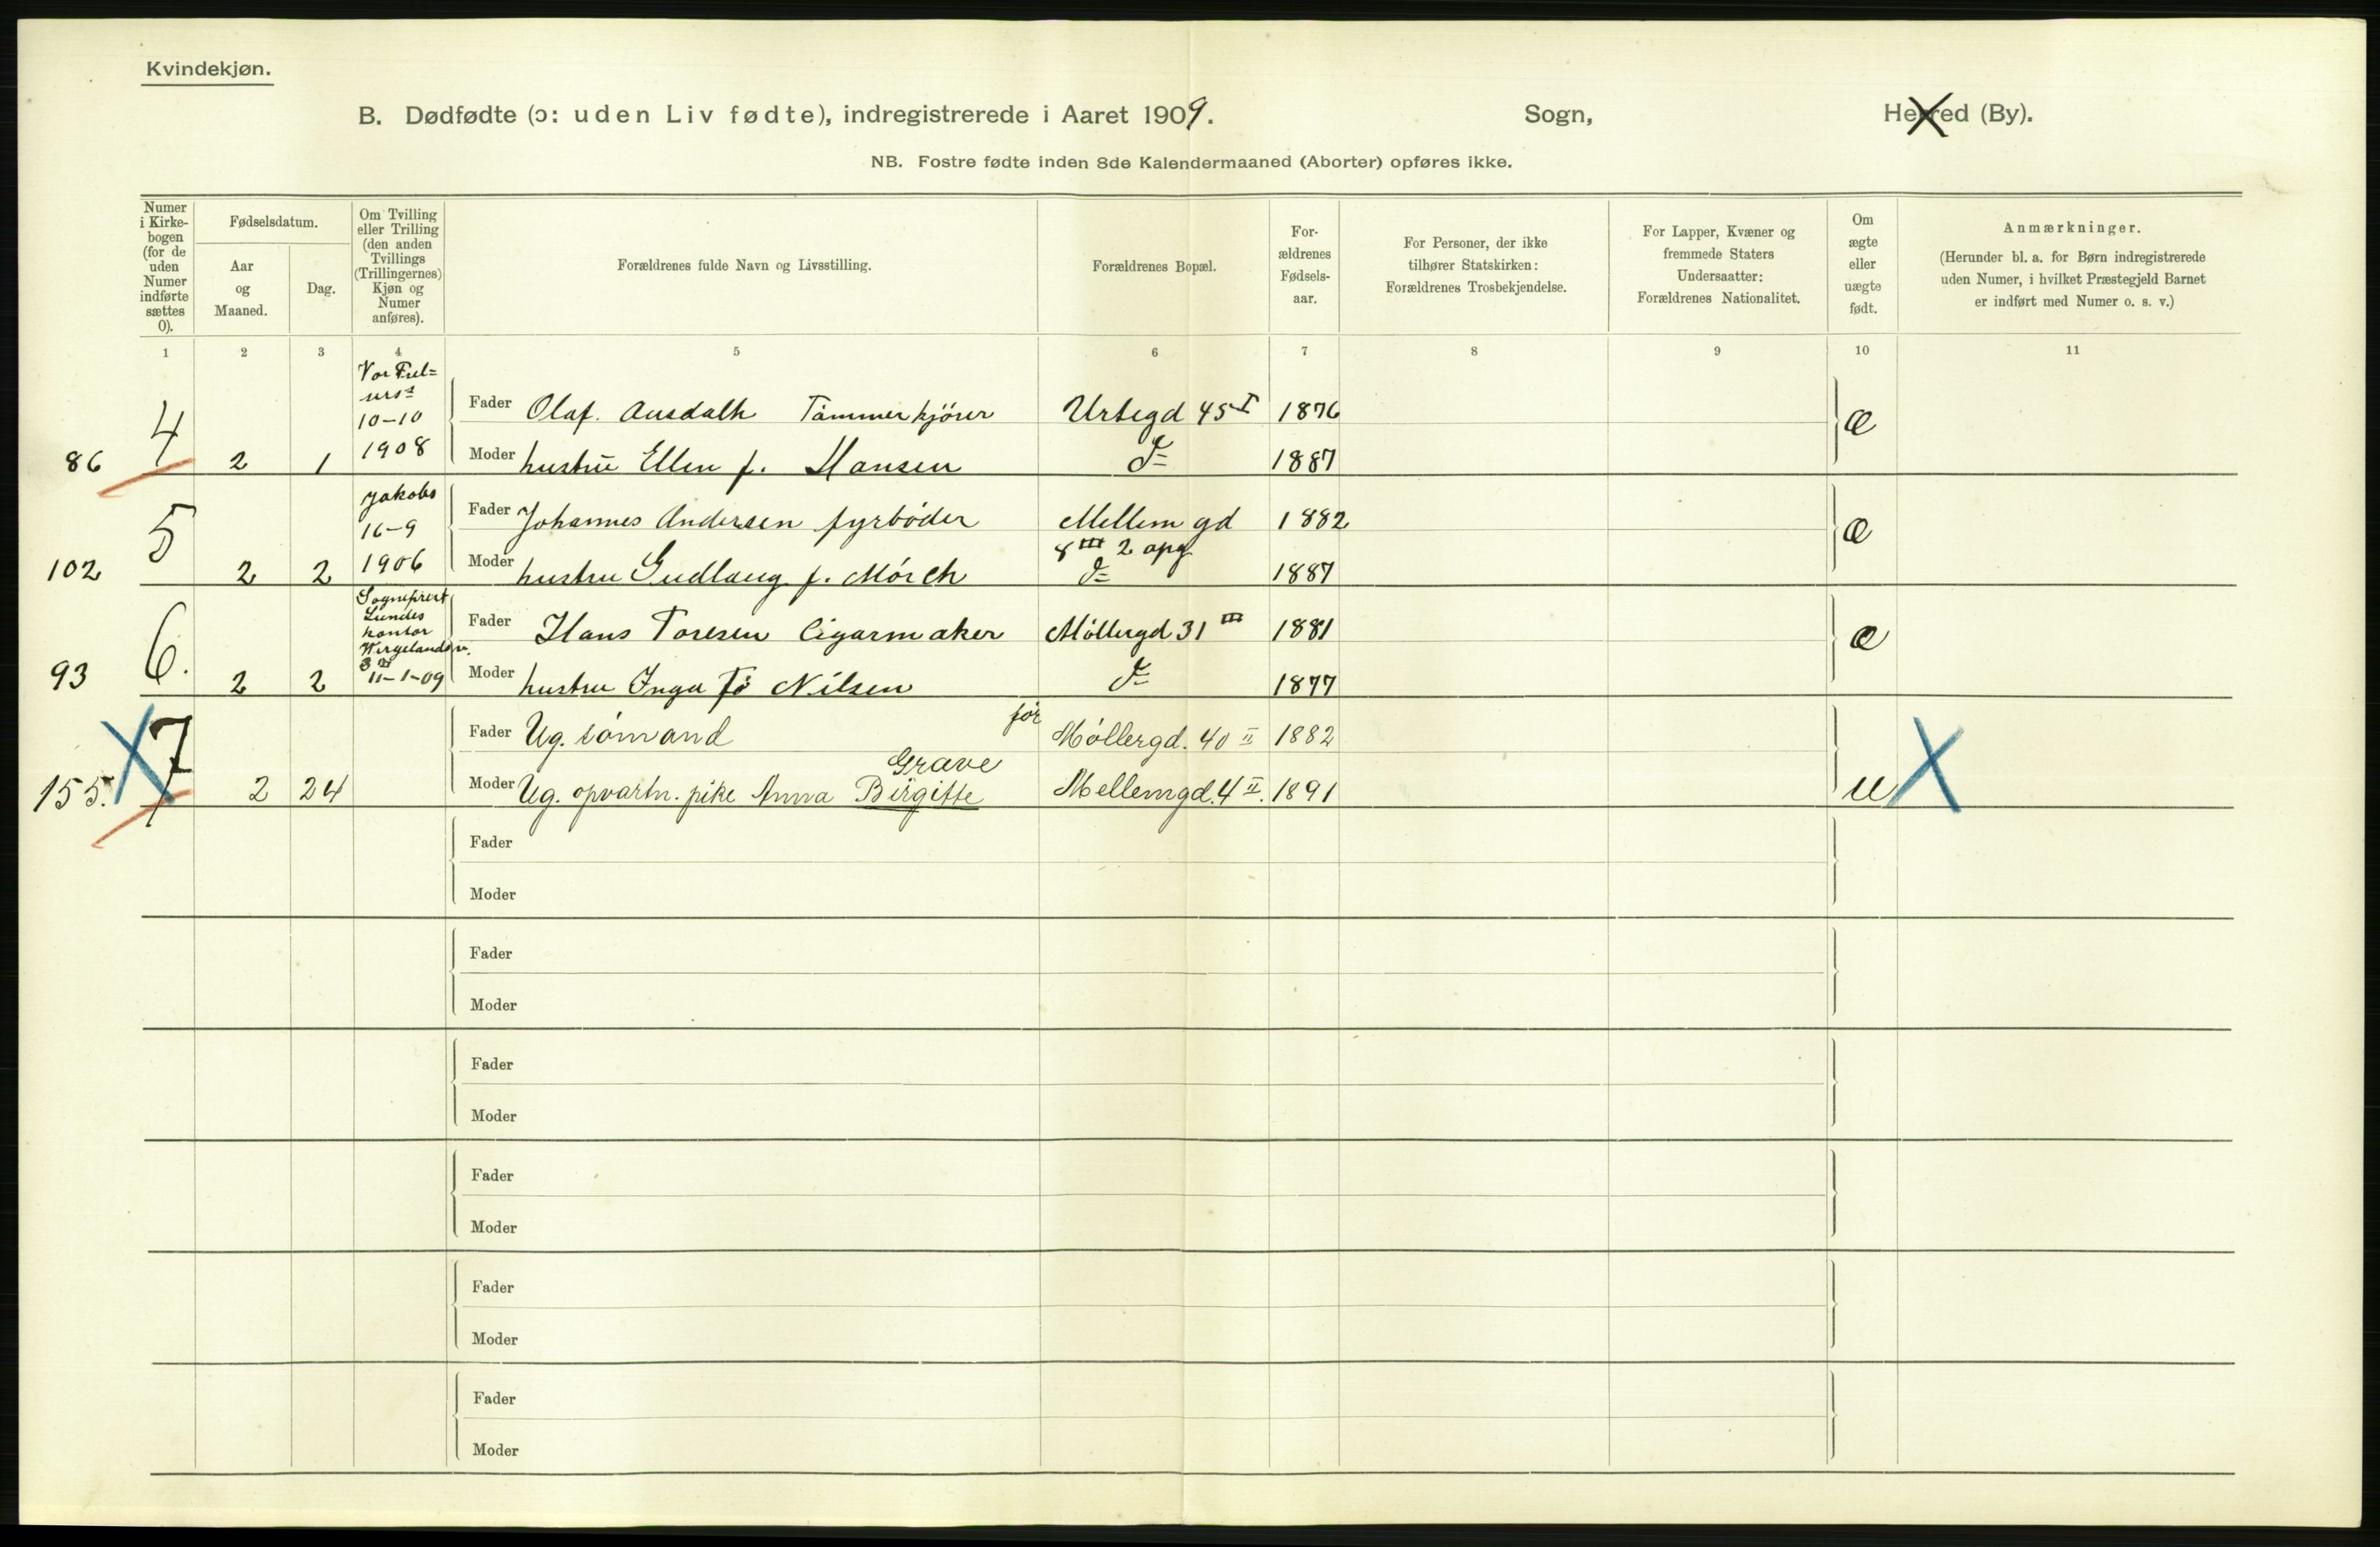 Kvindekjøn.
B. Dødfødte (ɔ: uden Liv fødte), indregistrerede i Aaret 1909. Sogn, Herred (By).
NB. Fostre fødte inden 8de Kalendermaaned (Aborter) opføres ikke.
Numer i Kirkebogen (for de uden Numer indførte sættes 0).
Fødselsdatum.
Aar og Maaned.
Dag.
Om Tvilling eller Trilling (den anden Tvillings (Trillingernes) Kjøn og Numer anføres).
Forældrenes fulde Navn og Livsstilling.
Forældrenes Bopæl.
Forældrenes Fødselsaar.
For Personer, der ikke tilhører Statskirken: Forældrenes Trosbekjendelse.
For Lapper, Kvæner og fremmede Staters Undersaatter: Forældrenes Nationalitet.
Om ægte eller uægte født.
Anmærkninger.
(Herunder bl. a. for Børn indregistrerede uden Numer, i hvilket Præstegjeld Barnet er indført med Numer o. s. v.)
1 2 3 4 5 6 7 8 9 10 11
Vor Frel=
sers
10-10
1908
86 4 2 1
Fader Olaf Tømmerkjører Urtegd 45 I 1876 Æ
Moder hustru Ellen f. Hansen do 1887
Jakobs
16-9
1906
102 5 2 2
Fader Johannes Andersen fyrbøder Mellemgd 1882 Æ
8 III 2 opg
Moder hustru Gudlaug f. Mørch do 1887
Sogneprest
Lundes
kontor
Wergelandsv.
3 II
11-1-09
93 6. 2 2
Fader Hans Toresen Cigarmaker Møllergd 31 III 1881 Æ
Moder hustru Inga f. Nilsen do 1877
155. X 7 2 24
Fader Ug. sømand før Møllergd. 40 II 1882
Grave
Moder Ug. opvartn. pike Anna Birgitte Mellemgd. 4 II. 1891 U X
Fader
Moder
Fader
Moder
Fader
Moder
Fader
Moder
Fader
Moder
Fader
Moder